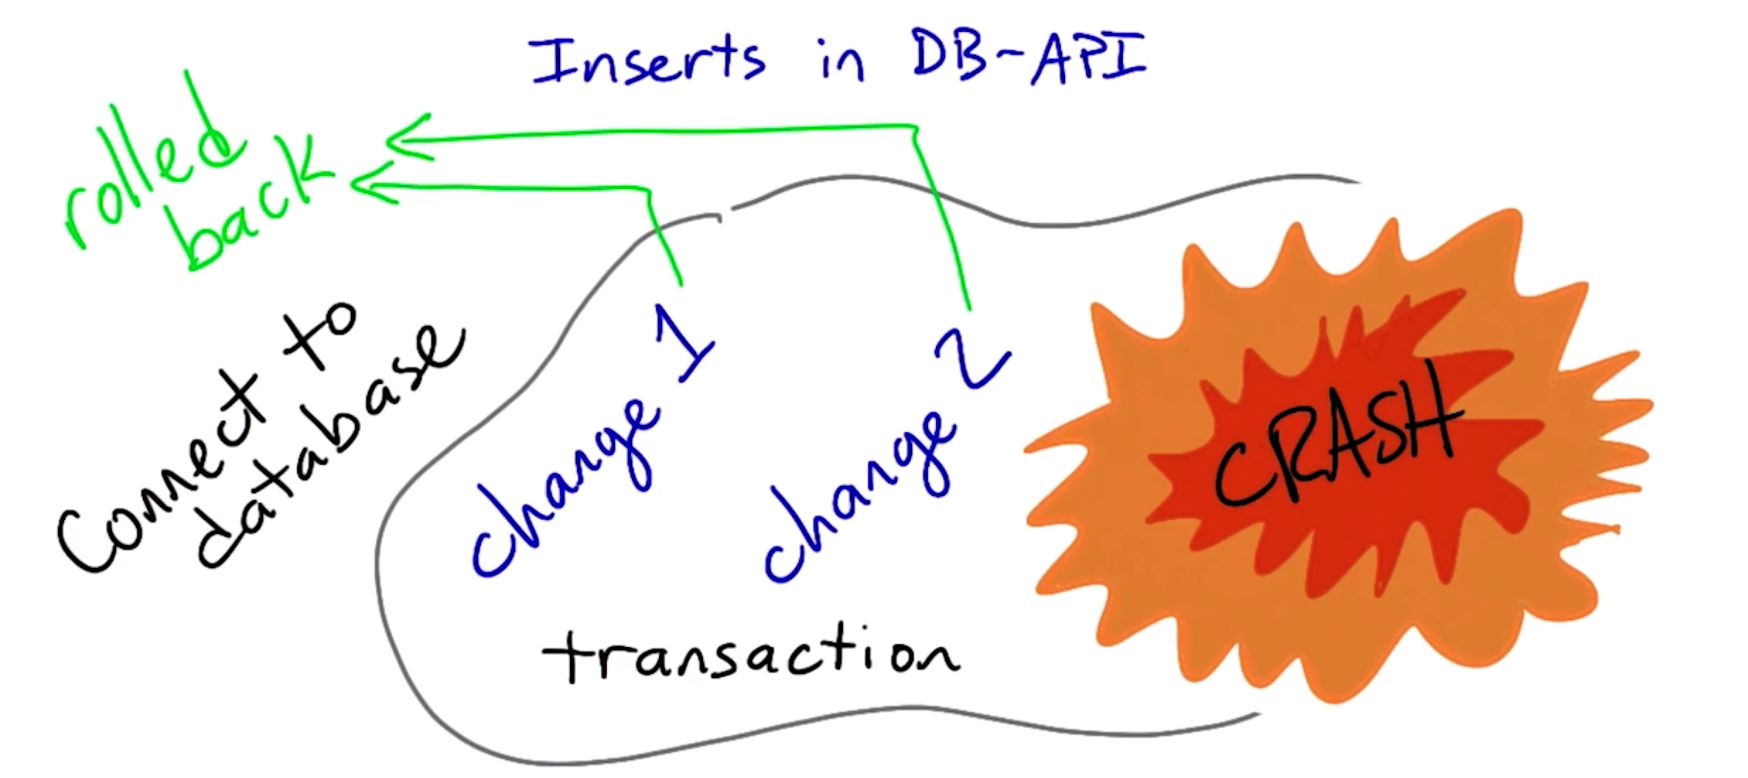 Inserts in DB-API
rolled
back
Connect to
database
change 1
change 2
CRASH
transaction